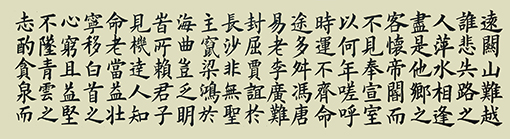 遠關山難越
誰悲失路之
人萍水相逢
盡是他鄉之
客懷帝閽而
不見奉宣室
以何年嗟呼
時運不齊命
途多舛馮唐
易老李廣難
封屈賈誼於
長沙非無聖
主竄梁鴻於
海曲豈乏明
旹所賴君子
見機達人知
命老當益壯
寧移白首之
心窮且益堅
不墜青雲之
志酌貪泉而